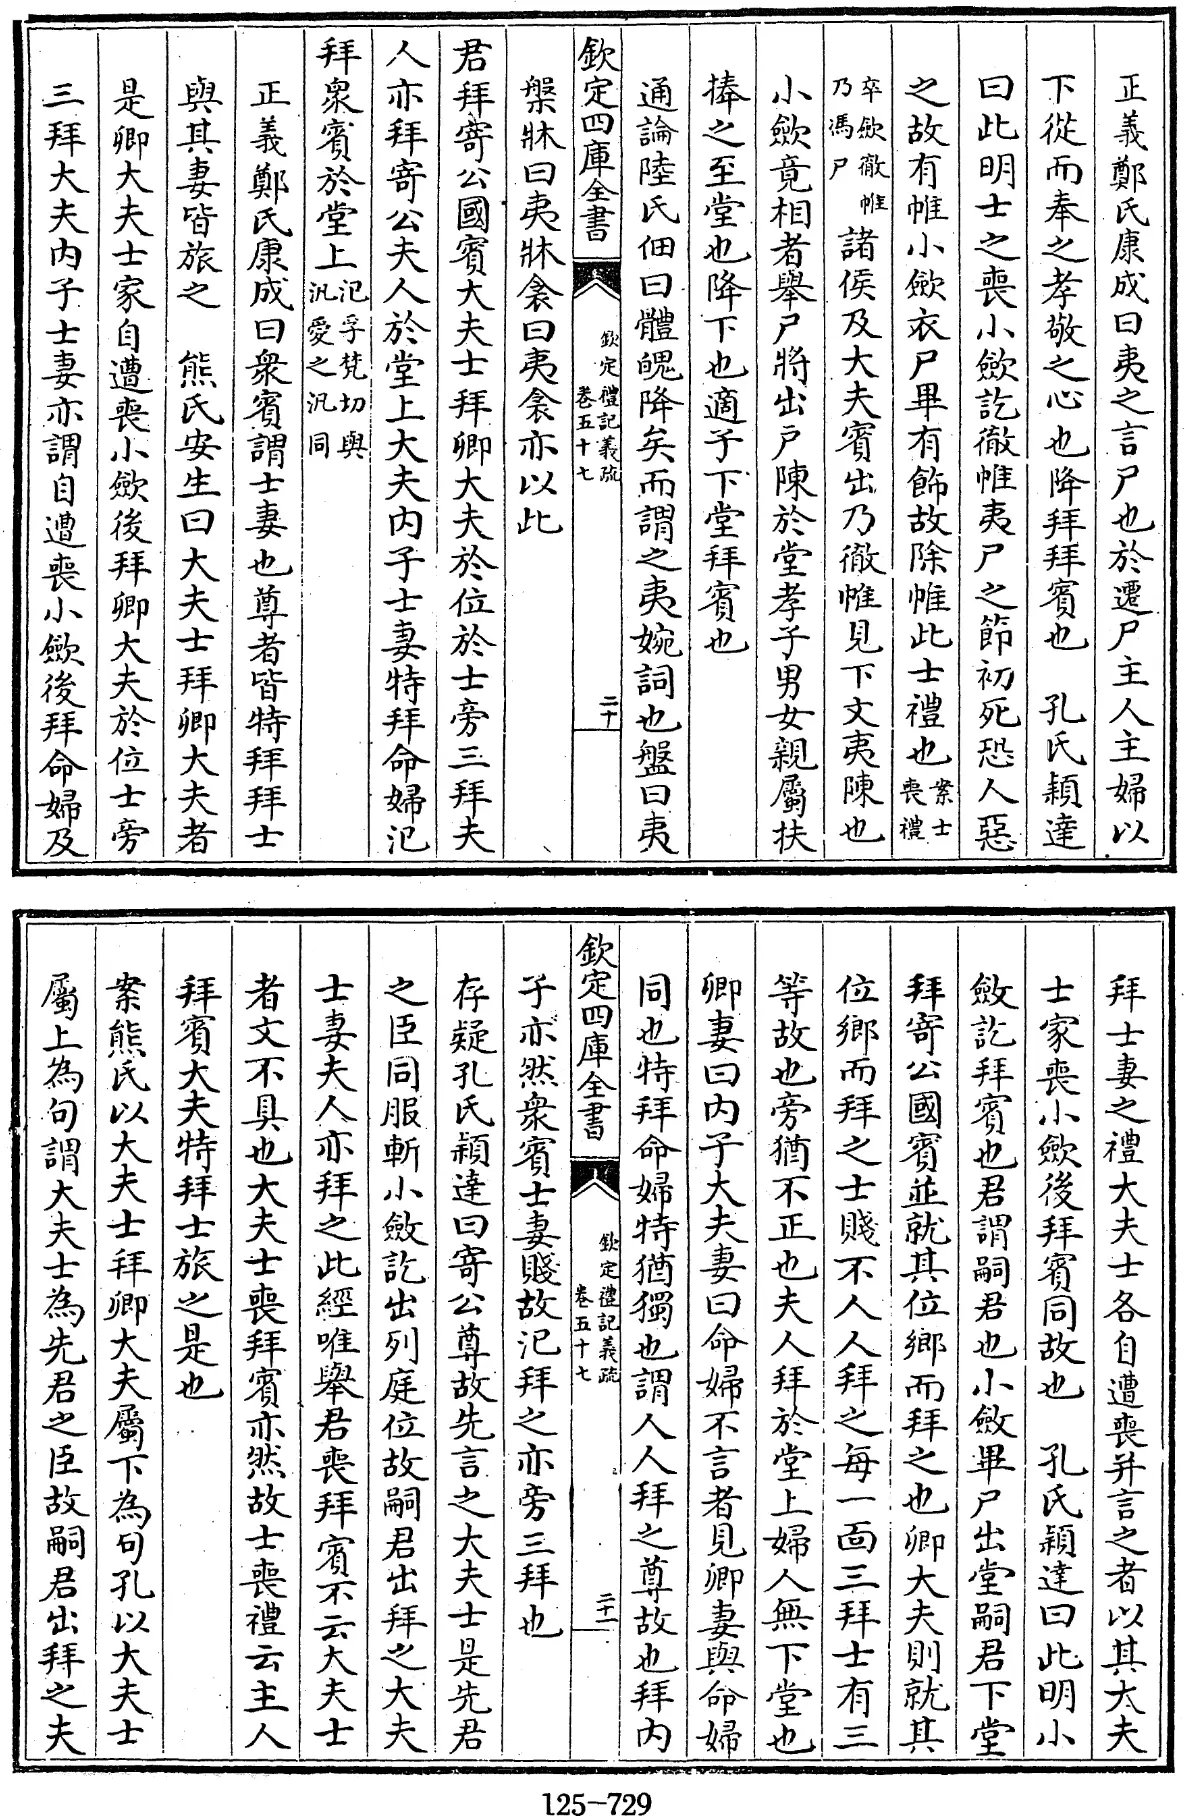 正義鄭氏康成曰夷之言尸也於遷尸主人主婦以
下從而奉之孝敬之心也降拜拜賓也　孔氏穎達
曰此明士之喪小斂訖徹帷夷尸之節初死恐人惡
之故有帷小斂衣尸畢有飾故除帷此士禮也案士喪禮
卒斂徹帷乃馮尸諸侯及大夫賓出乃徹帷見下文夷陳也
小斂竟相者舉尸將出戶陳於堂孝子男女親屬扶
捧之至堂也降下也適子下堂拜賓也
通論陸氏佃曰體魄降矣而謂之夷婉詞也盤曰夷
欽定四庫全書
欽定禮記義疏
卷五十七
二十
槃牀曰夷牀衾曰夷衾亦以此
君拜寄公國賓大夫士拜卿大夫於位於士旁三拜夫
人亦拜寄公夫人於堂上大夫內子士妻特拜命婦氾
拜衆賓於堂上氾孚梵切與汎愛之汎同
正義鄭氏康成曰衆賓謂士妻也尊者皆特拜拜士
與其妻皆旅之　熊氏安生曰大夫士拜卿大夫者
是卿大夫士家自遭喪小斂後拜卿大夫於位士旁
三拜大夫內子士妻亦謂自遭喪小斂後拜命婦及
拜士妻之禮大夫士各自遭喪并言之者以其大夫
士家喪小斂後拜賓同故也　孔氏穎達曰此明小
斂訖拜賓也君謂嗣君也小斂畢尸出堂嗣君下堂
拜寄公國賓並就其位鄉而拜之也卿大夫則就其
位鄉而拜之士賤不人人拜之每一面三拜士有三
等故也旁猶不正也夫人拜於堂上婦人無下堂也
卿妻曰內子大夫妻曰命婦不言者見卿妻與命婦
同也特拜命婦特猶獨也謂人人拜之尊故也拜內
欽定四庫全書
欽定禮記義疏
卷五十七
二十一
子亦然衆賓士妻賤故氾拜之亦旁三拜也
存疑孔氏穎達曰寄公尊故先言之大夫士是先君
之臣同服斬小斂訖出列庭位故嗣君出拜之大夫
士妻夫人亦拜之此經唯舉君喪拜賓不云大夫士
者文不具也大夫士喪拜賓亦然故士喪禮云主人
拜賓大夫特拜士旅之是也
案熊氏以大夫士拜卿大夫屬下為句孔以大夫士
屬上為句謂大夫士為先君之臣故嗣君出拜之夫
125-729